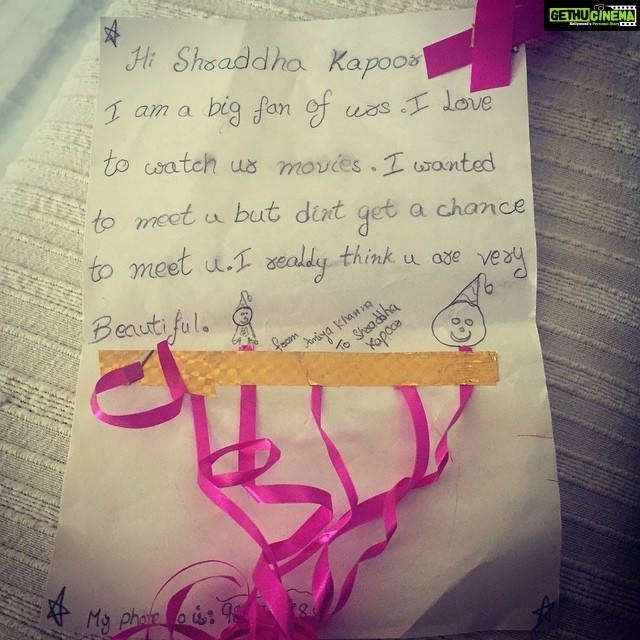 GETHUCINEMA
Hi Shraddha Kapoor
I am a big fan of urs. I Love
to watch ur movies. I wanted
to meet u but dint get a chance
to meet u. I really think u are very
Beautiful.
from Khanna
To Shraddha
Kapoor
My phone no is: